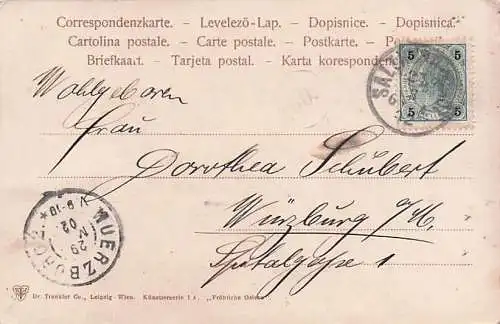 Correspondenzkarte. – Levelezö-Lap. – Dopisnice. – Dopisnica.
Cartolina postale. – Carte postale. – Postkarte. –
Briefkaart. – Tarjeta postal. – Karta korespondencyjna.
5 5
5 5
Wohlgeboren
Frau
Dorothea Schubert
Würzburg a/M.
Spitalgasse 1
WUERZBURG
29
IV
02
V. 9-10
Dr. Trenkler Co., Leipzig - Wien. Künstlerserie I „Fröhliche Ostern“